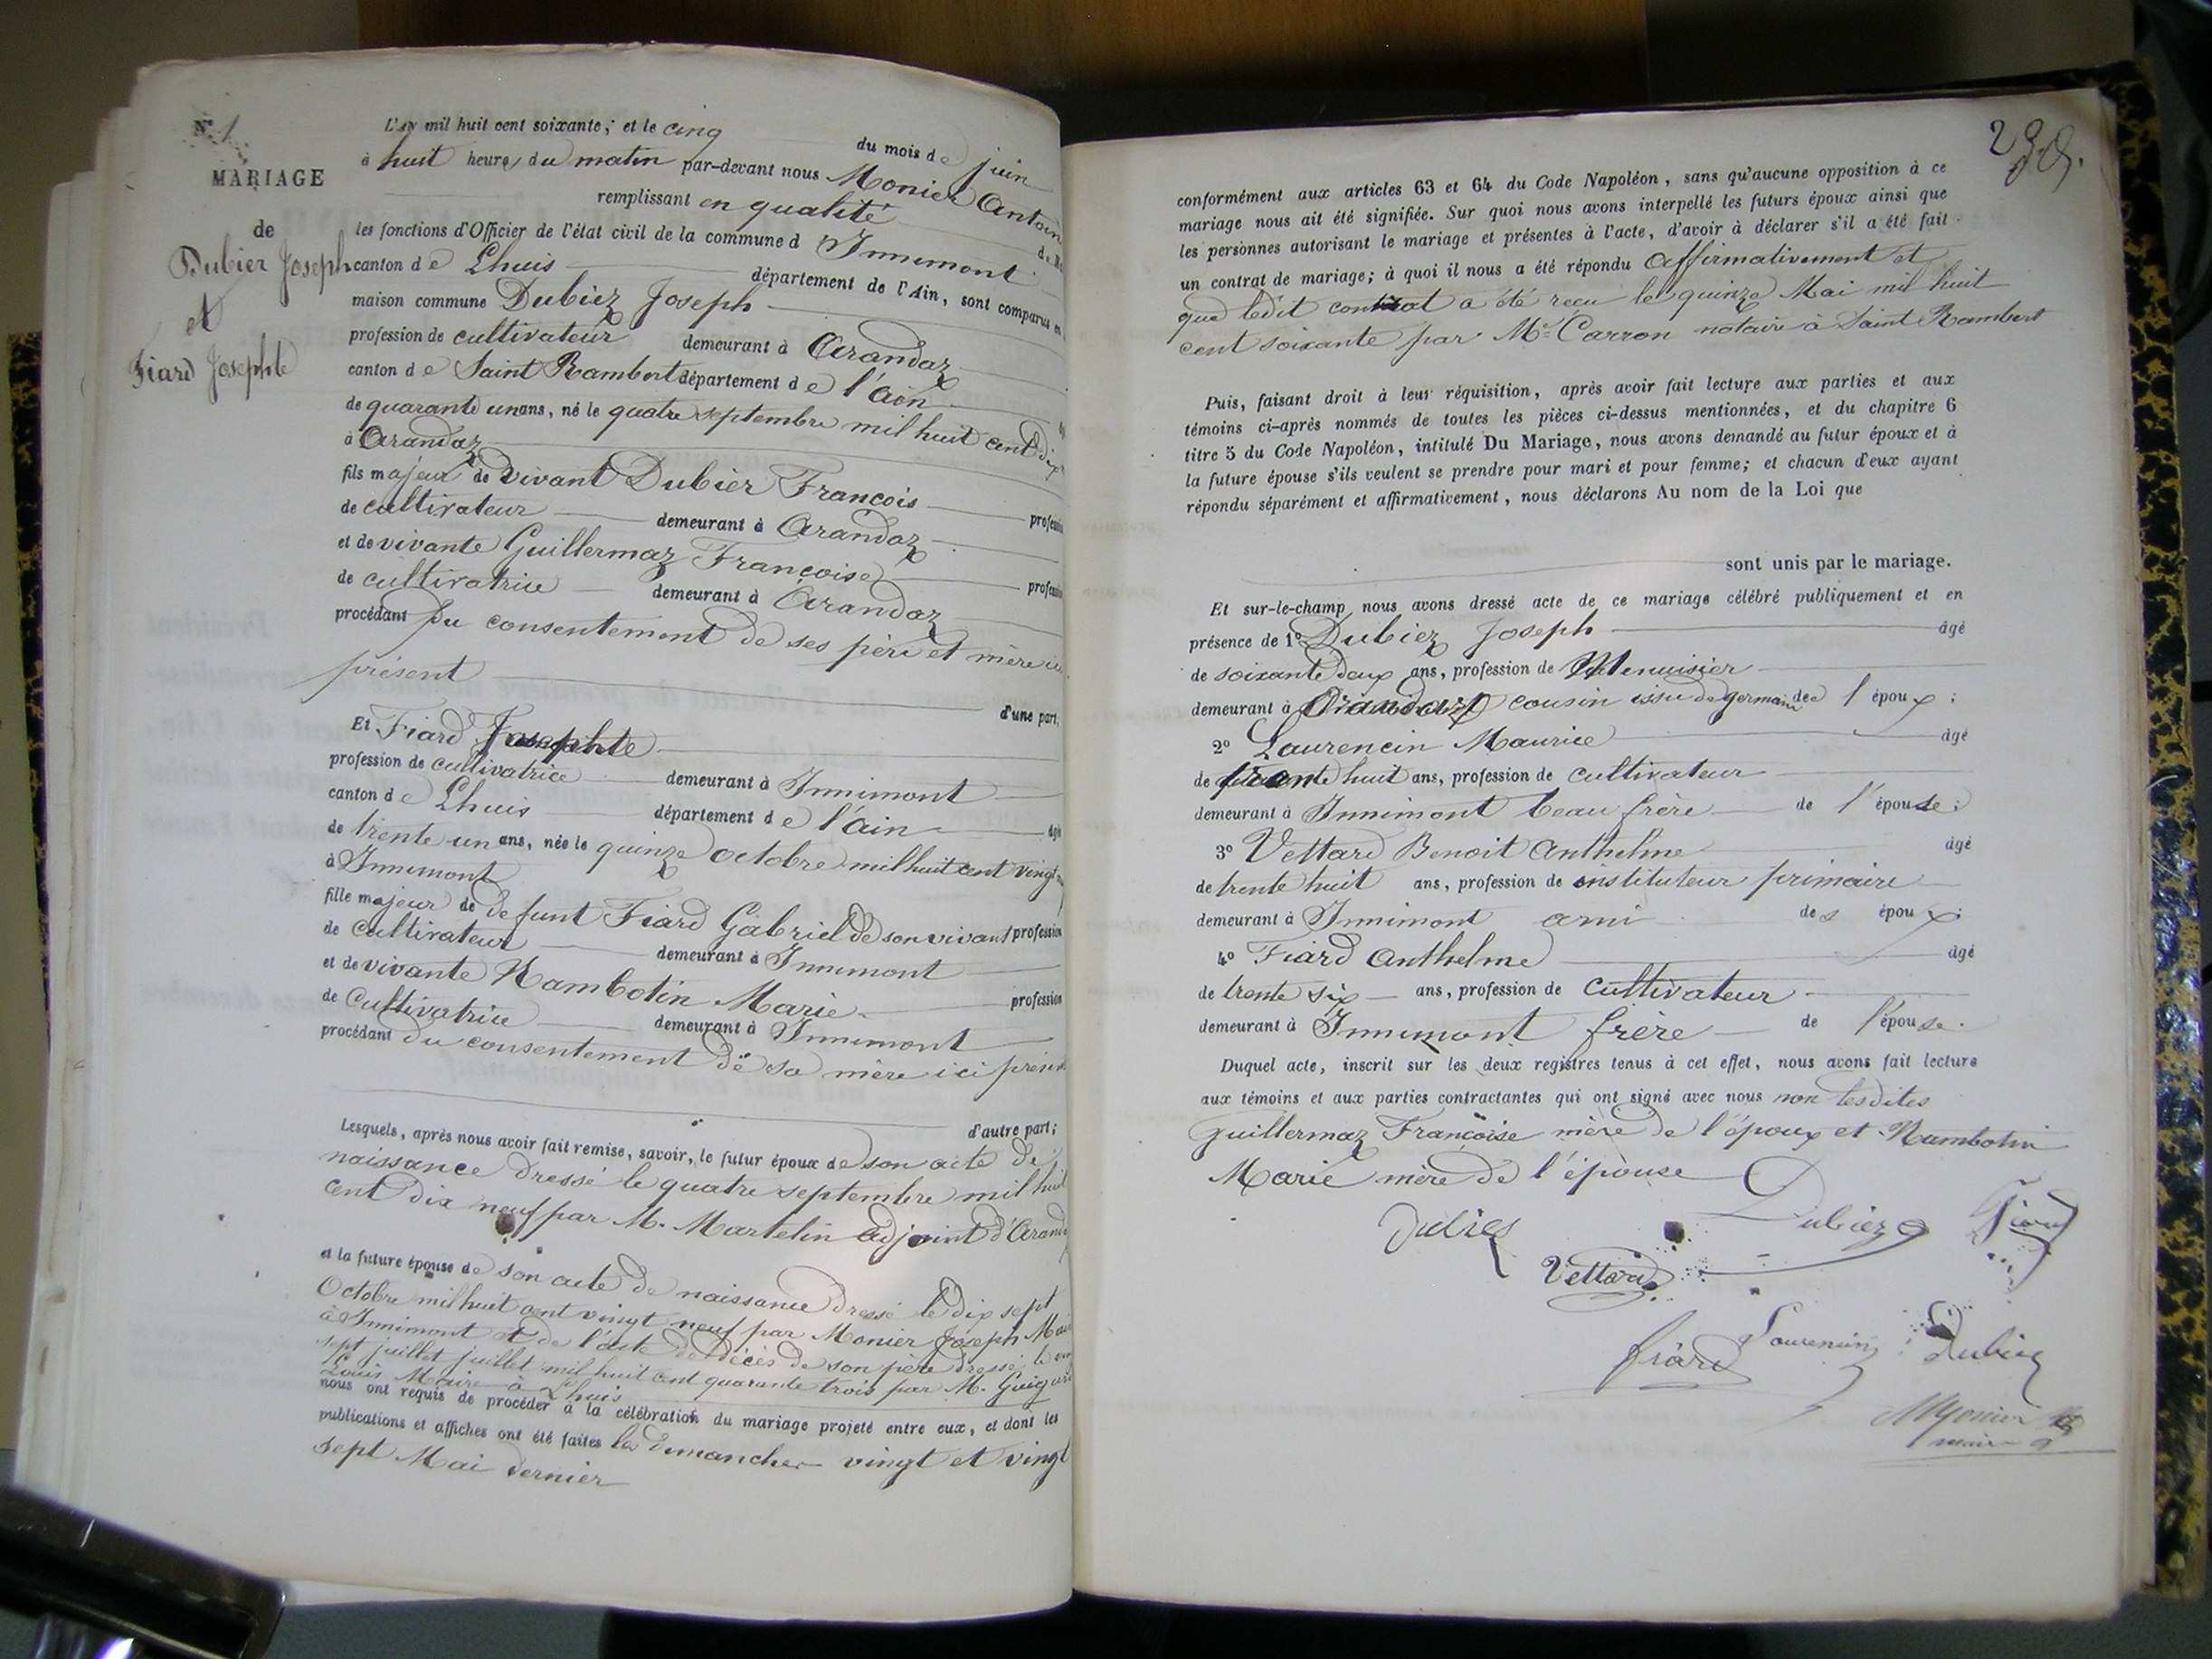 N° 1
MARIAGE
de
Dubier Joseph
et
Fiard Josephte
L'an mil huit cent soixante; et le cinq du mois de juin
à huit heures du matin par-devant nous Monier Antoin
remplissant en qualité
les fonctions d'Officier de l'état civil de la commune d Innimont
canton de Lhuis département de l'Ain, sont comparus en
maison commune Dubiez Joseph
profession de cultivateur demeurant à Arandaz
canton de Saint Rambert département de l'ain
de quarante un ans, né le quatre septembre mil huit cent dix
à Arandaz
fils majeur de vivant Dubier François
de cultivateur demeurant à Arandaz
et de vivante Guillermaz Françoise
de cultivatrice demeurant à Arandaz
procédant Du consentement de ses père et mère ici
présent
d'une part.
Et Fiard Josephte
profession de cultivatrice demeurant à Innimont
canton de Lhuis département de l'ain
de trente un ans, née le quinze octobre mil huit cent vingt
à Innimont
fille majeur de defunt Fiard Gabriel de son vivant profession
de Cultivateur demeurant à Innimont
et de vivante Rambotin Marie profession
de Cultivatrice demeurant à Innimont
procédant du consentement de sa mère ici présente
d'autre part;
Lesquels, après nous avoir fait remise, savoir, le futur époux de son acte de
naissance dressé le quatre septembre mil huit
cent dix neuf par M. Martelin adjoint d'Arand
et la future épouse de son acte de naissance dressé le dix sept
Octobre mil huit cent vingt neuf par Monier Joseph Mai
à Innimont et de l'acte de décès de son père dressé le
sept juillet juillet mil huit cent quarante trois par M. Guigard
Louis Maire à Lhuis
nous ont requis de procéder à la célébration du mariage projeté entre eux, et dont les
publications et affiches ont été faites les dimanches vingt et vingt
sept Mai dernier
conformément aux articles 63 et 64 du Code Napoléon, sans qu'aucune opposition à ce
mariage nous ait été signifiée. Sur quoi nous avons interpellé les futurs époux ainsi que
les personnes autorisant le mariage et présentes à l'acte, d'avoir à déclarer s'il a été fait
un contrat de mariage; à quoi il nous a été répondu affirmativement et
que ledit contrat a été reçu le quinze Mai mil huit
cent soixante par Me Carron notaire à Saint Rambert
Puis, faisant droit à leur réquisition, après avoir fait lecture aux parties et aux
témoins ci-après nommés de toutes les pièces ci-dessus mentionnées, et du chapitre 6
titre 5 du Code Napoléon, intitulé Du Mariage, nous avons demandé au futur époux et à
la future épouse s'ils veulent se prendre pour mari et pour femme; et chacun d'eux ayant
répondu séparément et affirmativement, nous déclarons Au nom de la Loi que
sont unis par le mariage.
Et sur-le-champ nous avons dressé acte de ce mariage célébré publiquement et en
présence de 1° Dubiez Joseph âgé
de soixante deux ans, profession de Menuisier
demeurant à cousin issu de germain de l'époux;
2° Laurencin Maurice âgé
de trente huit ans, profession de cultivateur
demeurant à Innimont beau frère de l'épouse;
3° Vettard Benoit Anthelme âgé
de trente huit ans, profession de instituteur primaire
demeurant à Innimont ami des époux;
4° Fiard Anthelme âgé
de trente six ans, profession de Cultivateur
demeurant à Innimont frère de l'épouse.
Duquel acte, inscrit sur les deux registres tenus à cet effet, nous avons fait lecture
aux témoins et aux parties contractantes qui ont signé avec nous non lesdites
Guillermaz Françoise mère de l'époux et Rambotin
Marie mère de l'épouse
Dubiez Fiard
Vettard
fiard Laurencin Dubiez
Monier
maire